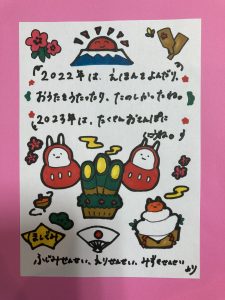 2022年は、えほんをよんだり、
おうたをうたったり、たのしかったね。
2023年は、たくさんおさんぽに
いこうね。
ふじみせんせい、えりせんせい、みずきせんせい
より